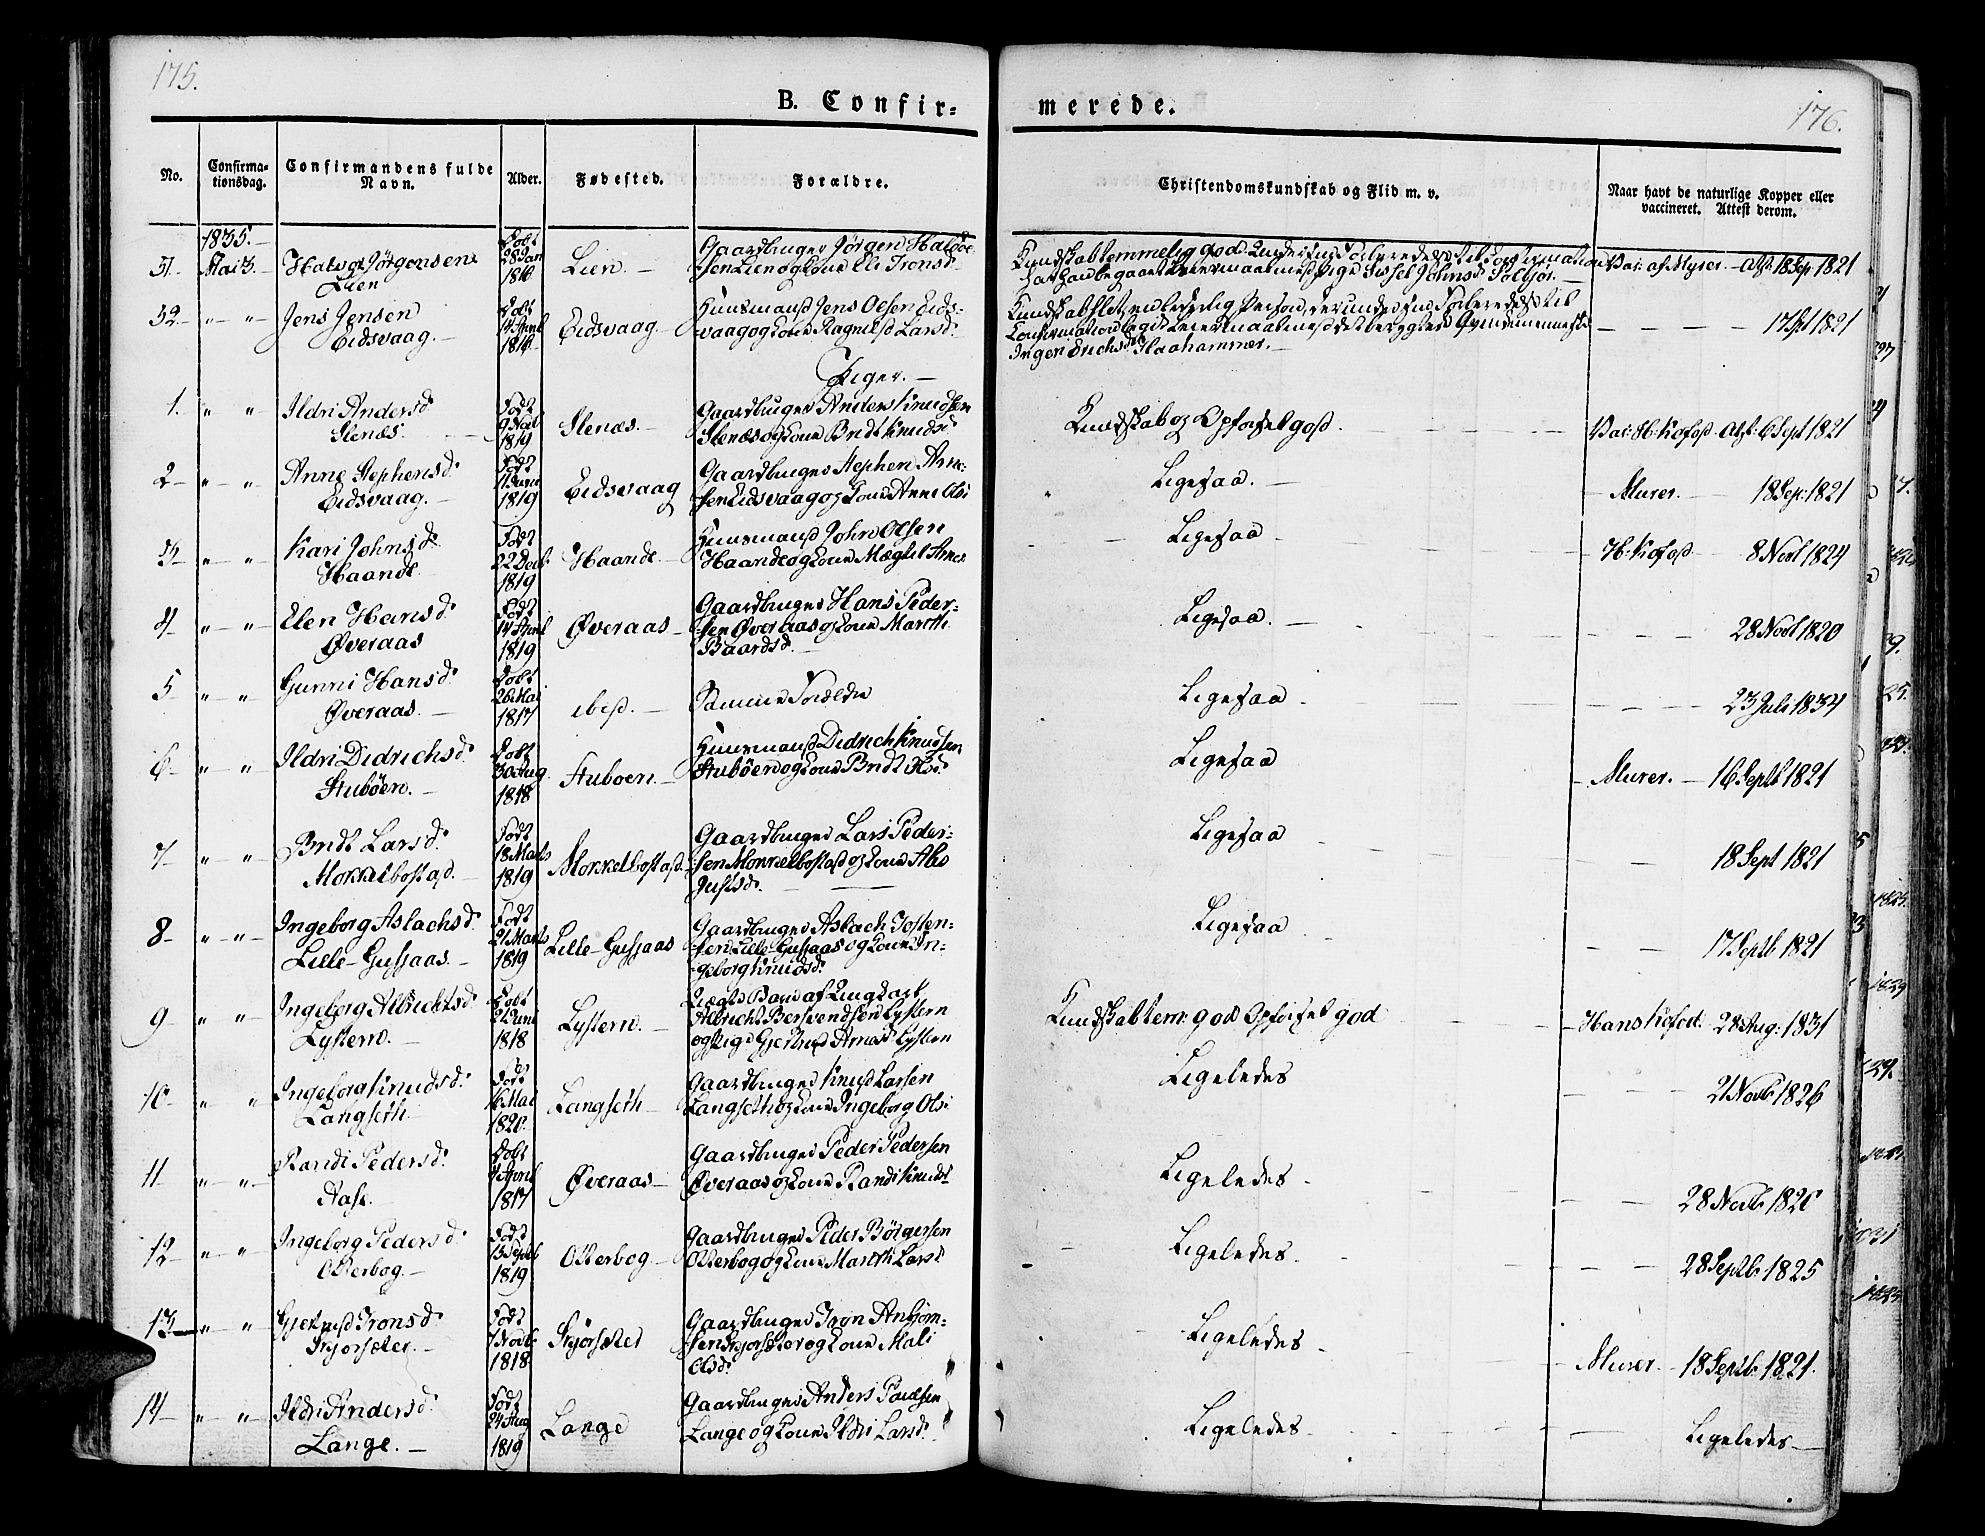 175.
B. Confir-
merede.
176.
No.
Confirma-
tionsdag.
Confirmandens fulde
Navn.
Alder.
Fødested.
Forældre.
Christendomskundskab og Flid m. v.
Naar havt de naturlige Kopper eller
vaccineret. Attest derom.
1835.
31 Mai 3. Halvor Jörgensen
Lien
Født
28 Jan
1816
Lien.
Gaardbruger Jörgen Halvor-
sen Lien og Kone Eli Tronsd.
Vac: af Myrer. Att. 18 Sep. 1821
32 " " Jens Jensen
Eidsvaag.
Født
14 April
1816
Eidsvaag
Huusmand Jens Olsen Eids-
vaag og Kone Ragnild Larsd.
Ingen Erichsd. Flaahammer.
17 Spt 1821
Piger.
1. " " Ildri Andersd.
Stenæs.
Født
9 Febr
1819
Stenæs.
Gaardbruger Anders Knudsen
Stenæs og Kone Brit Knudsd.
Kundskab og Opførsel god.
Vac: H: Kofod Att: 6 Sept 1821
2 " " Anne Stephensd.
Eidsvaag.
Født
1819
Eidsvaag
Gaardbruger Stephen Arne-
sen Eidsvaag og Kone Anne Olsd
Ligesaa.
Murer. 18 Sep: 1821
3 " " Kari Johnsd.
Haande
Født
22 Decb.
1819
Haande
Huusmand John Olsen
Haande og Kone Maghil Arnesd
Ligesaa
H: Kofod 8 Novb 1824
4 " " Elen Hansd.
Øveraas
Født
14 April
1819
Øveraas
Gaardbruger Hans Peder-
sen Øveraas og Kone Marith
Baardsd.
Ligesaa.
28 Novb 1820
5 " " Gunni Hansd.
Øveraas.
Født
26 Mai
1817
ibid.
Samme Forældre
Ligesaa
23 Juli 1834
6 " " Ildri Didrichsd.
Stubøen.
Født
30 Aug.
1818
Stuboen.
Huusmand Didrich Knudsen
Stubøen og Kone Brit Olsd.
Ligesaa
Murer. 16 Septb 1821
7 " " Brit Larsd.
Mokkelbostad.
Født
18 Marts
1819
Mokkelbostad.
Gaardbruger Lars Peder-
sen Mokkelbostad og Kone Ales
Justsd.
Ligesaa
18 Sept 1821
8 " " Ingeborg Aslachsd.
Lille-Gusjaas.
Født
21 Marts
1819
Lille-Gusjaas
Gaardbruger Aslach Josten-
sen Lille Gusjaas og Kone In-
geborg Knudsd.
Ligesaa
17 Septb 1821
9 " " Ingeborg Albrichtsd.
Lystern.
Født
21 Juni
1818
Lystern.
Uægte Barn af Ungkarl
Albricht Bersvendsen Lystern
og Pige Gjertrud Arnesd. Lystern
Kundskab tem: god Opførsel god
Hans Kofod. 28 Aug: 1831
10 " " Ingeborg Knudsd.
Langseth
Født
16 Mai
1820
Langseth
Gaardbruger Knud Larsen
Langseth og Kone Ingeborg Olsd
Ligeledes
21 Novb 1826
11 " " Randi Pedersd.
Aase.
Født
4 April
1817
Øveraas
Gaardbruger Peder Pedersen
Øveraas og Kone Randi Knudsd
Ligeledes
28 Novb. 1820
12 " " Ingeborg Pedersd.
Otterbog.
Født
13 Septb
1819
Otterbog
Gaardbruger Peder Börgersen
Otterbog og Kone Marith Larsd
Ligeledes.
28 Septb. 1825
13 " " Gjertrud Tronsd.
Skjorsæter.
Født
7 Novb.
1818
Skjorsæter
Gaardbruger Tron Anbjörn-
sen Skjorsæter og Kone Mali
Olsd.
Ligeledes
Murer. 18 Septb. 1821.
14 " " Ildri Andersd.
Lange.
Født
24 Aug
1819
Lange
Gaardbruger Anders Poulsen
Lange og Kone Ildri Larsd.
Ligeledes
Ligeledes